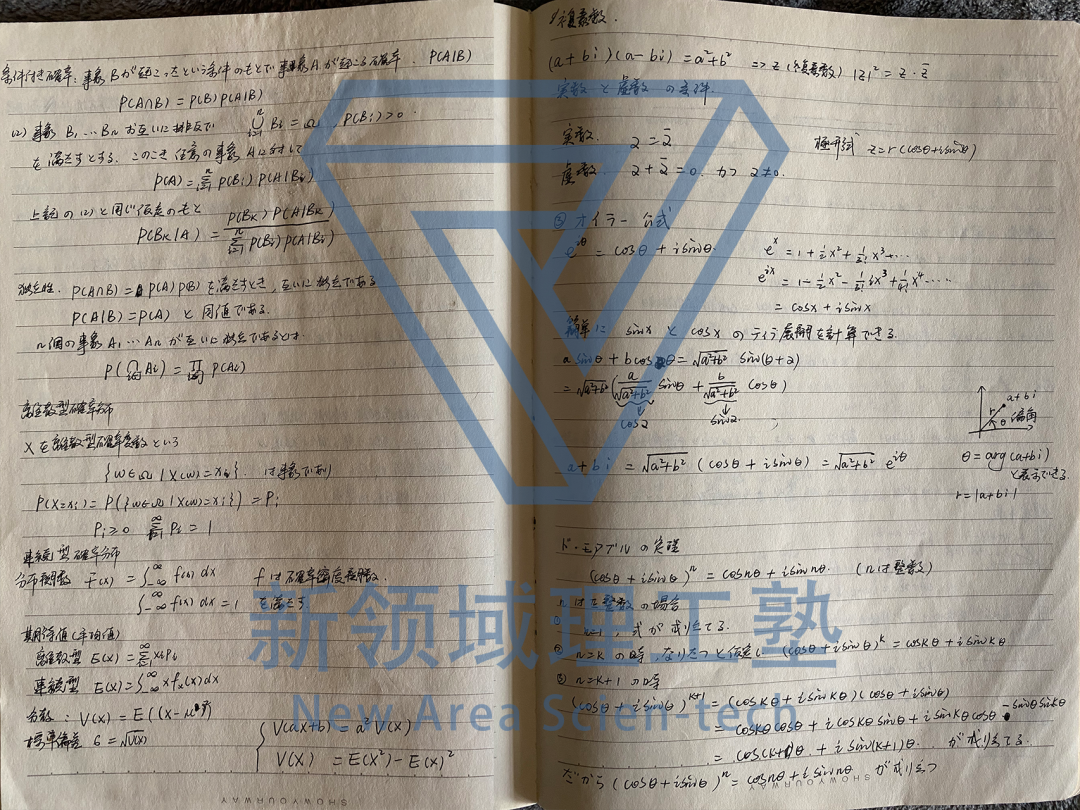 条件付き確率: 事象Bが起こったという条件のもとで事象Aが起こる確率. P(A|B)
P(A∩B) = P(B)P(A|B)
(2) 事象 B₁, … Bₙ お互いに排反で ⋃ⁿᵢ₌₁ Bᵢ = Ω, P(Bᵢ) > 0
を満たすとする. このとき 任意の事象 Aに対して
P(A) = Σⁿᵢ₌₁ P(Bᵢ) P(A|Bᵢ)
上記の(2)と同じ仮定のもと
P(Bₖ|A) = P(Bₖ) P(A|Bₖ) / Σⁿᵢ₌₁ P(Bᵢ) P(A|Bᵢ)
独立性. P(A∩B) = P(A) P(B) を満たすとき, 互いに独立である
P(A|B) = P(A) と 同値である.
n個の事象 A₁, … Aₙ が互いに独立であるとは
P(⋂ Aᵢ) = ∏ P(Aᵢ)
離散型確率分布
X を離散型確率変数という
{ω∈Ω | X(ω) = xᵢ}. は事象であり
P(X=xᵢ) = P({ω∈Ω | X(ω)=xᵢ}) = Pᵢ
Pᵢ ≥ 0 Σ^∞ᵢ₌₁ Pᵢ = 1
連続型確率分布
分布関数 F(x) = ∫₋∞^∞ f(x) dx fは確率密度関数.
∫₋∞^∞ f(x) dx = 1 を満たす.
期待値(平均値)
離散型 E(X) = Σ xᵢPᵢ
連続型 E(X) = ∫₋∞^∞ x fₓ(x) dx
分散 : V(X) = E((X-μ)²)
標準偏差 σ = √V(X)
V(ax+b) = a² V(X)
V(X) = E(X²) - E(X)²
複素数.
(a+bi)(a-bi) = a²+b² => z(複素数) |z|² = z・z̄
実数と虚数の条件.
実数. z = z̄ 極形式 z = r(cosθ+isinθ)
虚数. z + z̄ = 0. かつ z ≠ 0.
③ オイラー公式
e^{iθ} = cosθ + isinθ. e^x = 1 + ½x² + 1/3! x³ + …
e^{ix} = 1 - ½x² - 1/3! ix³ + 1/4! x⁴ ….
= cosx + isinx
簡単に sinx と cosx のテイラ展開を計算できる.
a sinθ + b cosθ = √a²+b² sin(θ+α)
= √a²+b² (a/√a²+b² sinθ + b/√a²+b² cosθ)
cosα sinα
a+bi
r θ 偏角
a+bi = √a²+b² (cosθ + isinθ) = √a²+b² e^{iθ}
θ = arg(a+bi)
と表示できる.
r = |a+bi|
ド・モアブルの定理
(cosθ + isinθ)ⁿ = cosnθ + isinnθ. (nは整数)
nは正整数の場合
式が成り立てる.
② n=k の時, なりたつと仮定し (cosθ+isinθ)^k = coskθ + isinkθ
③ n=k+1 の時
(cosθ + isinθ)^{k+1} = (coskθ + isinkθ)(cosθ + isinθ)
= coskθcosθ + icoskθsinθ + isinkθcosθ - sinθsinkθ
= cos(k+1)θ + isin(k+1)θ. が成り立てる.
だから (cosθ + isinθ)ⁿ = cosnθ + isinnθ が成り立つ
新领域理工塾
New Area Scien-tech
SHOWYOURWAY
SHOWYOURWAY